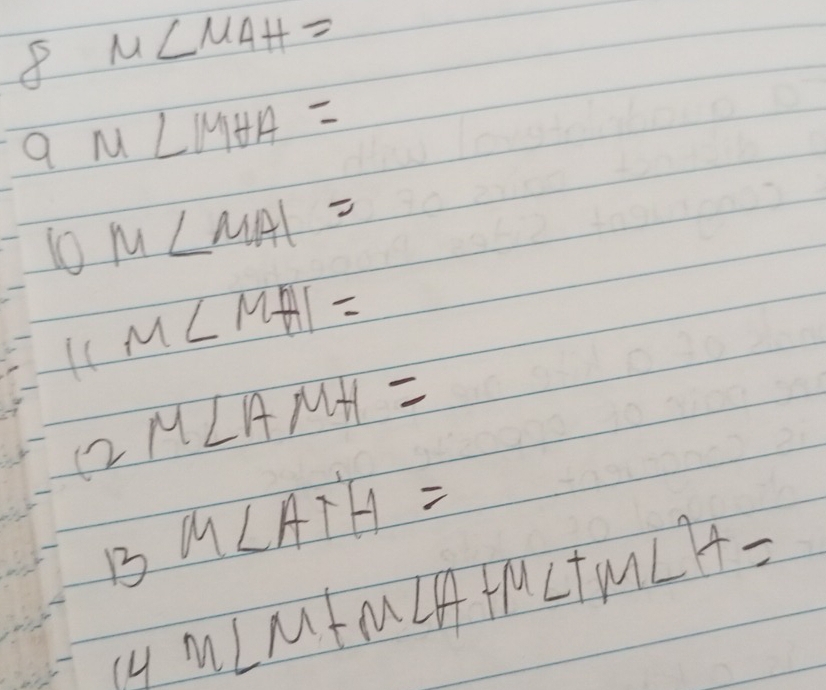 8 M∠MAH =
9 M∠MHA =
10 M∠MAI =
11 M∠MHI =
12 M∠AMH =
13 M∠ATH =
14 M∠M+M∠A+M∠T+M∠H =